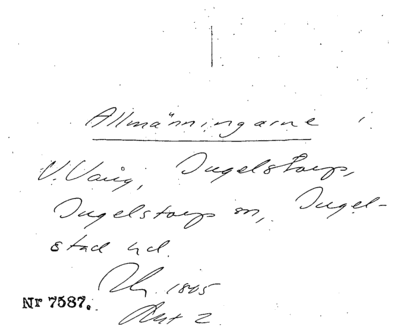 Allmänningarne
V. Vång, Ingelstorps,
Ingelstorps sn, Ingel-
stad hd.
1805
Nr 7587.
Akt 2